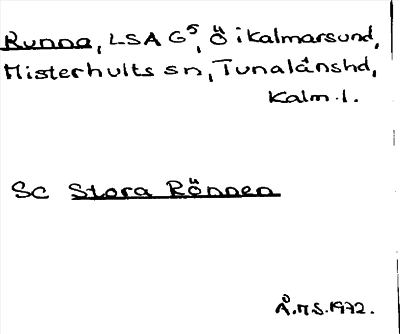 Runna, LSA G5, Ö i Kalmarsund,
Misterhults sn, Tunalänshd,
Kalm. l.
Sc Stora Rönnen
Å.M.S. 1972.